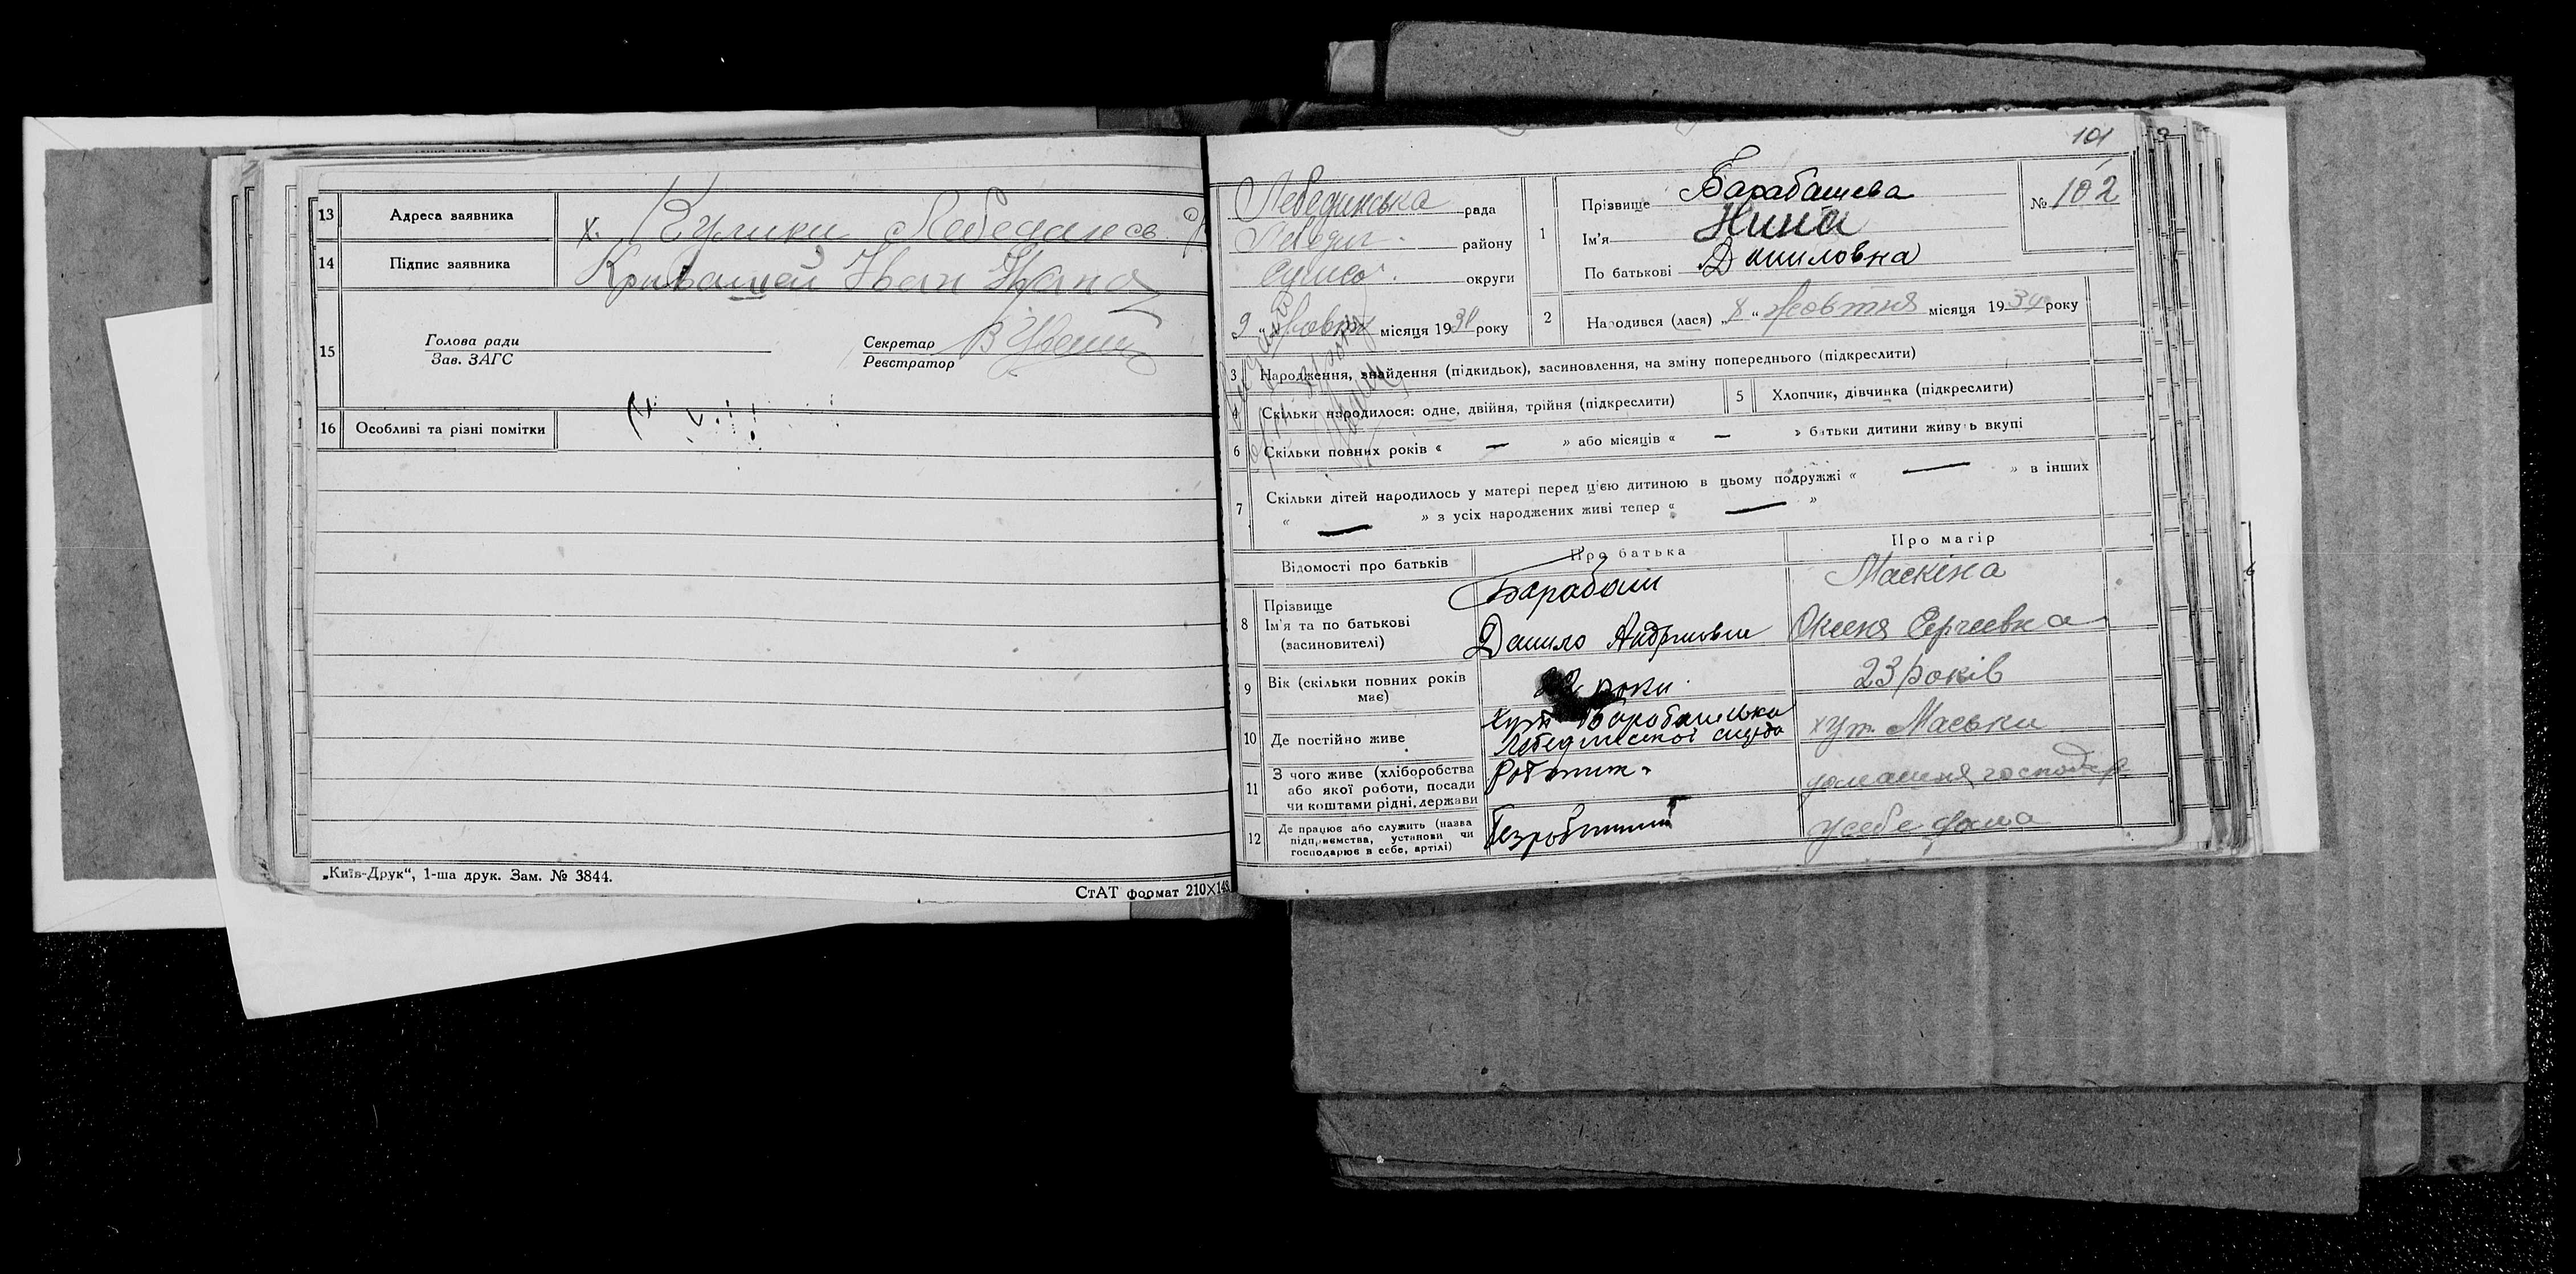 13 Адреса заявника х. Кулики Лебединсь.
14 Підпис заявника Кривашей Іван Іван
15 Голова ради
Зав. ЗАГС
Секретар
Реєстратор
16 Особливі та різні помітки
„Київ-Друк“, 1-ша друк. Зам. № 3844.
СтАТ формат 210×148
101
Лебединська рада
Лебедин. району
Сумсь. округи
9 „Жовтн місяця 1931 року
1 Прізвище Барабашева
Ім'я Нина
По батькові Даниловна
№ 102
2 Народився (лася) „8“ жовтня місяця 193 року
3 Народження, знайдення (підкидьок), засиновлення, на зміну попереднього (підкреслити)
4 Скільки народилося: одне, двійня, трійня (підкреслити)
5 Хлопчик, дівчинка (підкреслити)
6 Скільки повних років « — » або місяців « — » батьки дитини живуть вкупі
7 Скільки дітей народилось у матері перед цією дитиною в цьому подружжі « — » в інших
« — » з усіх народжених живі тепер « — »
Відомості про батьків
Про батька
Про матір
8 Прізвище
Ім'я та по батькові
(засиновителі)
Барабаш
Данило Андрийови
Маскіна
Оксеня Сергеевна
9 Вік (скільки повних років
має)
22 роки
23 років
10 Де постійно живе
хут Барабашівка
Лебединської
хут. Маськи
11 З чого живе (хліборобства
або якої роботи, посади
чи коштами рідні, держави
Робітник
домашня господар
12 Де працює або служить (назва
підприємства, установи чи
господарює в себе, артілі)
Безробітний
усебе дома